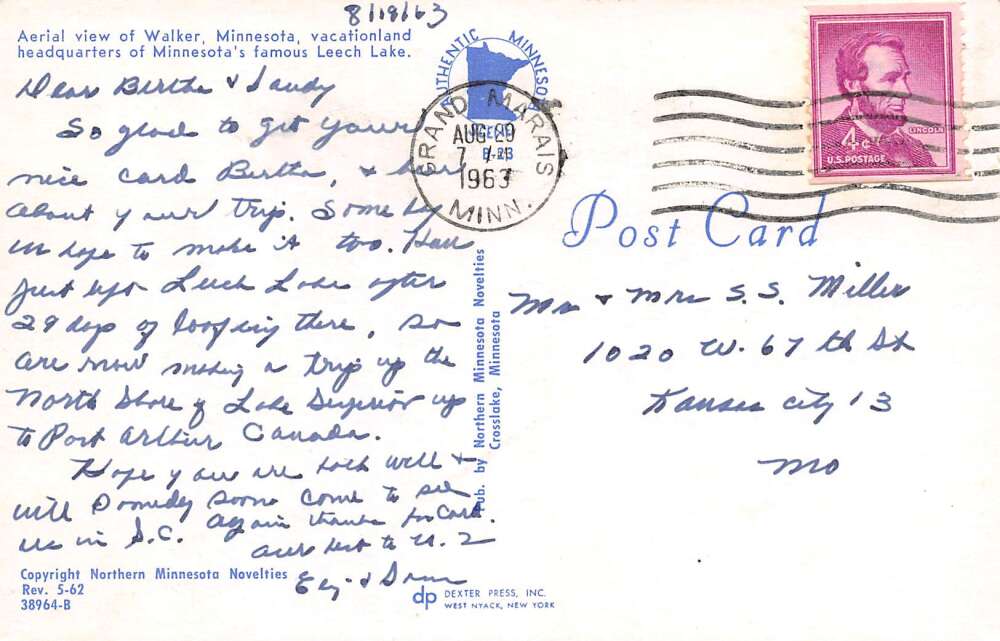 8/19/63
Aerial view of Walker, Minnesota, vacationland
headquarters of Minnesota's famous Leech Lake.
Dear Bertha & Sandy
So glad to get your
nice card Bertha, & hear
about your trip. Some day
we hope to make it too. Have
just left Leech Lake after
29 days of loafing there, so
are now making a trip up the
North Shore of Lake Superior up
to Port Arthur Canada.
Hope you are both well &
will someday soon come to see
us in S.C. Again thanks for card.
Our best to U. 2
Copyright Northern Minnesota Novelties
Rev. 5-62
38964-B
AUTHENTIC MINNESOTA
SCENE
GRAND MARAIS
AUG 20
7
1963
MINN.
Pub. by Northern Minnesota Novelties
Crosslake, Minnesota
dp DEXTER PRESS, INC.
WEST NYACK, NEW YORK
LINCOLN
4¢
U.S. POSTAGE
Post Card
Mr & Mrs S. S. Miller
1020 W. 67th St
Kansas City 13
Mo